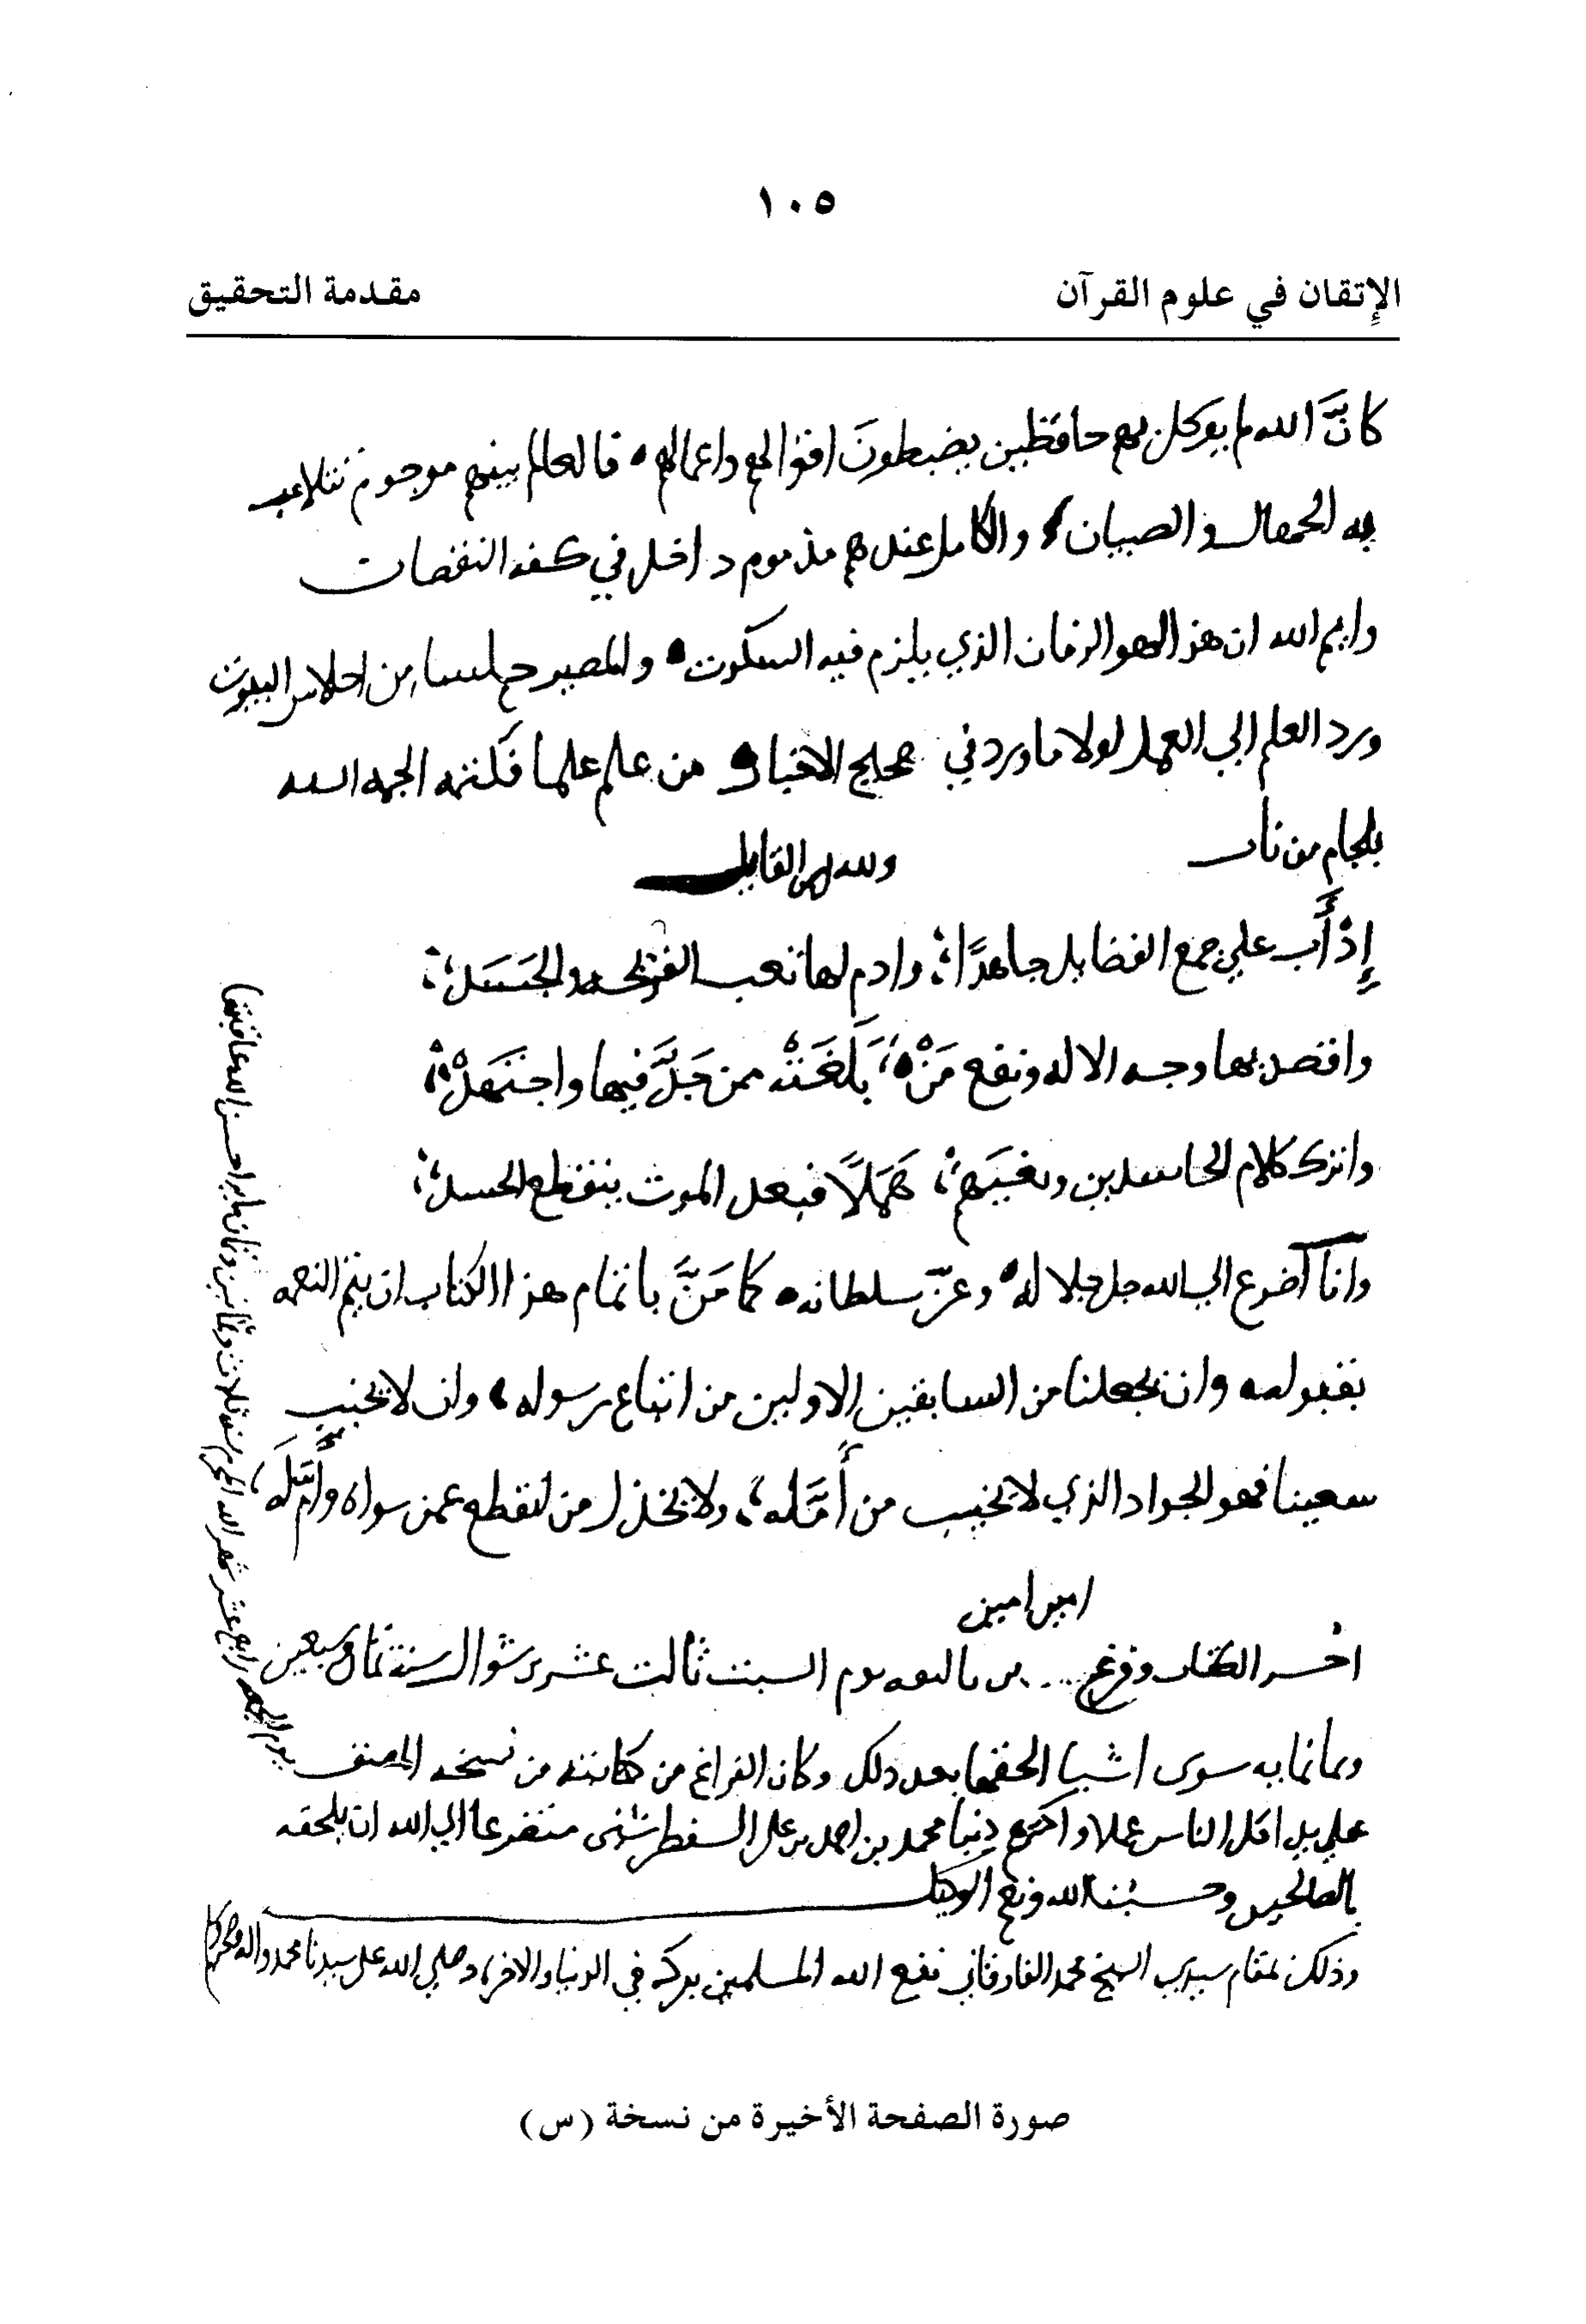 ١٠٥
الإتقان في علوم القرآن
مقدمة التحقيق
كانَّ الله لم يوكل بهم حافظين يضبطونَ اقوالهم واعمالهم فالعالم بينهم مرجوم تتلاعب
به الجهال والصبيان والكامل عندهم مذموم داخل في كفه النقصات
وايم الله ان هذا لهو الزمان الذي يلزم فيه السكوت والمصير حلسا من احلاس البيوت
ورد العلم الي العمل لولا ما ورد في صحيح الاخبار من علم علما فكتمه الجمه الله
بلجام من نار ولله القايل
إدْأَب علي جمع الفضايل جاهدًا وادم لها تعب القريحه والجَسَدْ
واقصد بها وجه الاله ونفع مَنْ بَلَغَتْه ممن جَدَّ فيها واجتَهَدْ
واترك كلام الحاسدين وبغيَهم هَمَلًا فبعد الموت ينقطع الحسد
وانا اَضرع الي الله جل جلاله وعزّ سلطانه كما مَنَّ باتمام هذا الكتاب ان يتم النعمه
بقبوله وان يجعلنا من السابقين الاولين من اتباع رسوله وان لا يخيب
سعينا فهو الجواد الذي لا يخيب من أَمَّله ولا يخذل من انقطع عمن سواه وأَمَّ لَه
امين امين
اخر الكتاب وفرغ من تاليفه يوم السبت ثالث عشر شوال سنة ثمان وسبعين
وثمانمايه سوى اشيا الحقها بعد ذلك وكان الفراغ من كتابته من نسخه المصنف
علي يد اقل الناس عملا واكثرهم ذنبا محمد بن احمد بن علي متضرعا الي الله ان يلحقه
بالصالحين وحسبنا الله ونعم الوكيل
وذلك بمقام سيدي الشيخ محمد نفع الله المسلمين ببركته في الدنيا والاخرة وصلي الله علي سيدنا محمد واله
يوم الجمعه رابع عشر شهر الله المحرم سنه ثلاث وثمانين وثمان مايه احسن الله عاقبتها
صورة الصفحة الأخيرة من نسخة (س)